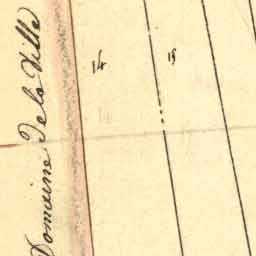 Domaine de la Ville
14
15